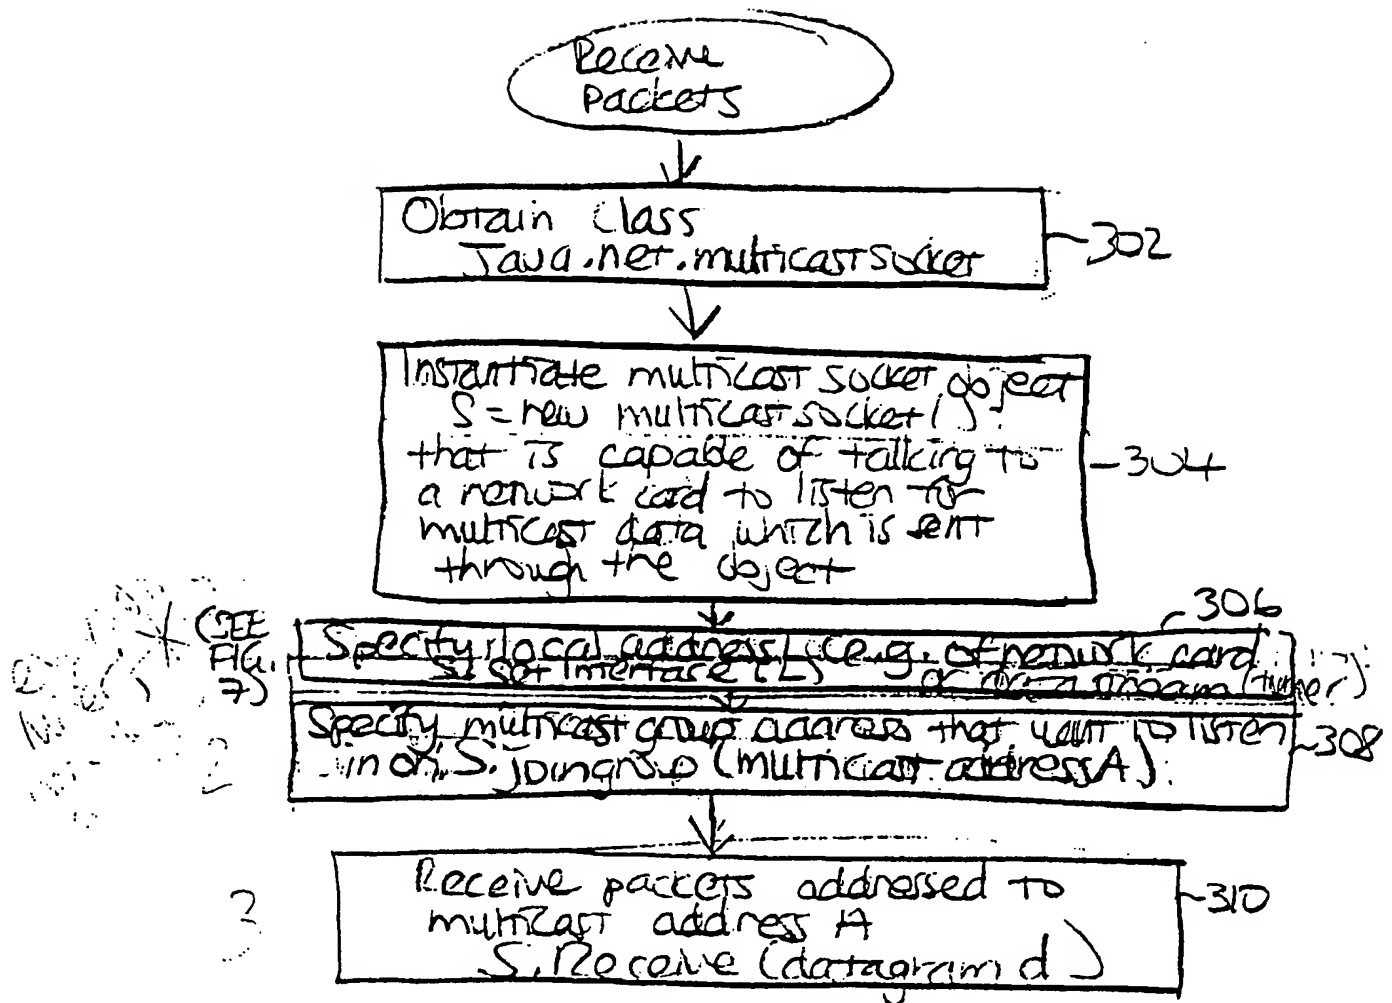 Receive
packets
Obtain Class
Java.net.multicastsocket
302
Instantiate multicast socket object
S = new multicastsocket( )
that is capable of talking to
a network card to listen for
multicast data which is sent
through the object
304
(SEE
FIG.
7)
306
Specify local address L (e.g. of network card
S. Set Interface (L) or data stream (tuner)
Specify multicast group address that want to listen
in on. S. joingroup (multicast address A)
308
2
Receive packets addressed to
multicast address A
S. Receive (datagram d)
310
3